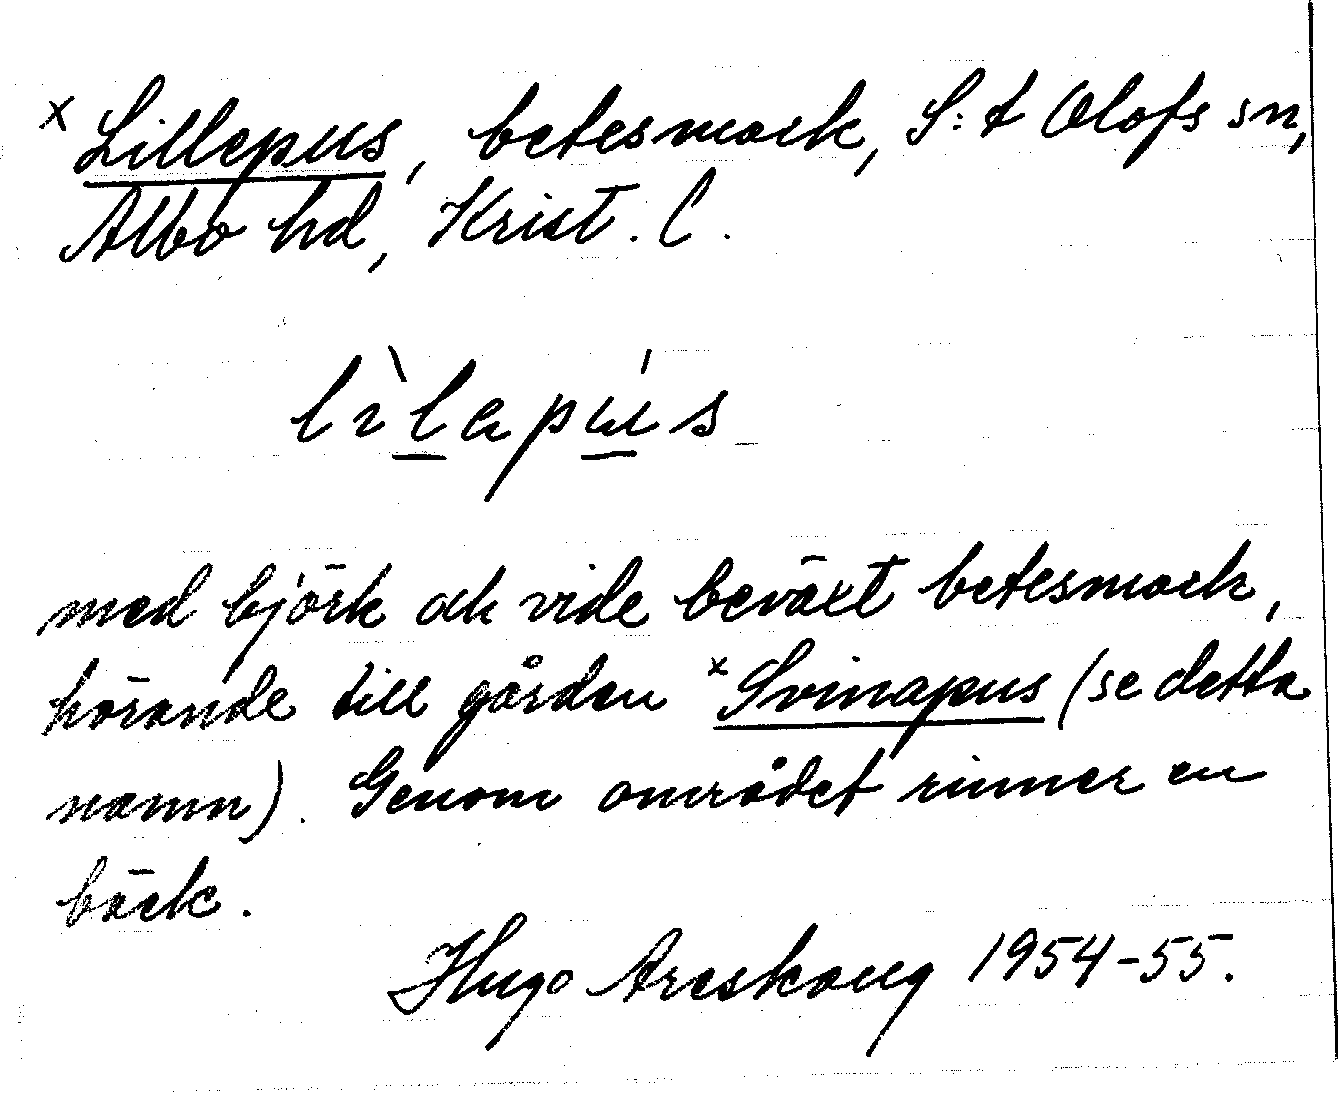 x Lillepus, betesmark, S:t Olofs sn,
Albo hd, Krist. l.
lìlapús
med björk och vide beväxt betesmark,
hörande till gården x Svinapus (se detta
namn). Genom området rinner en
bäck.
Hugo Areskoug 1954-55.